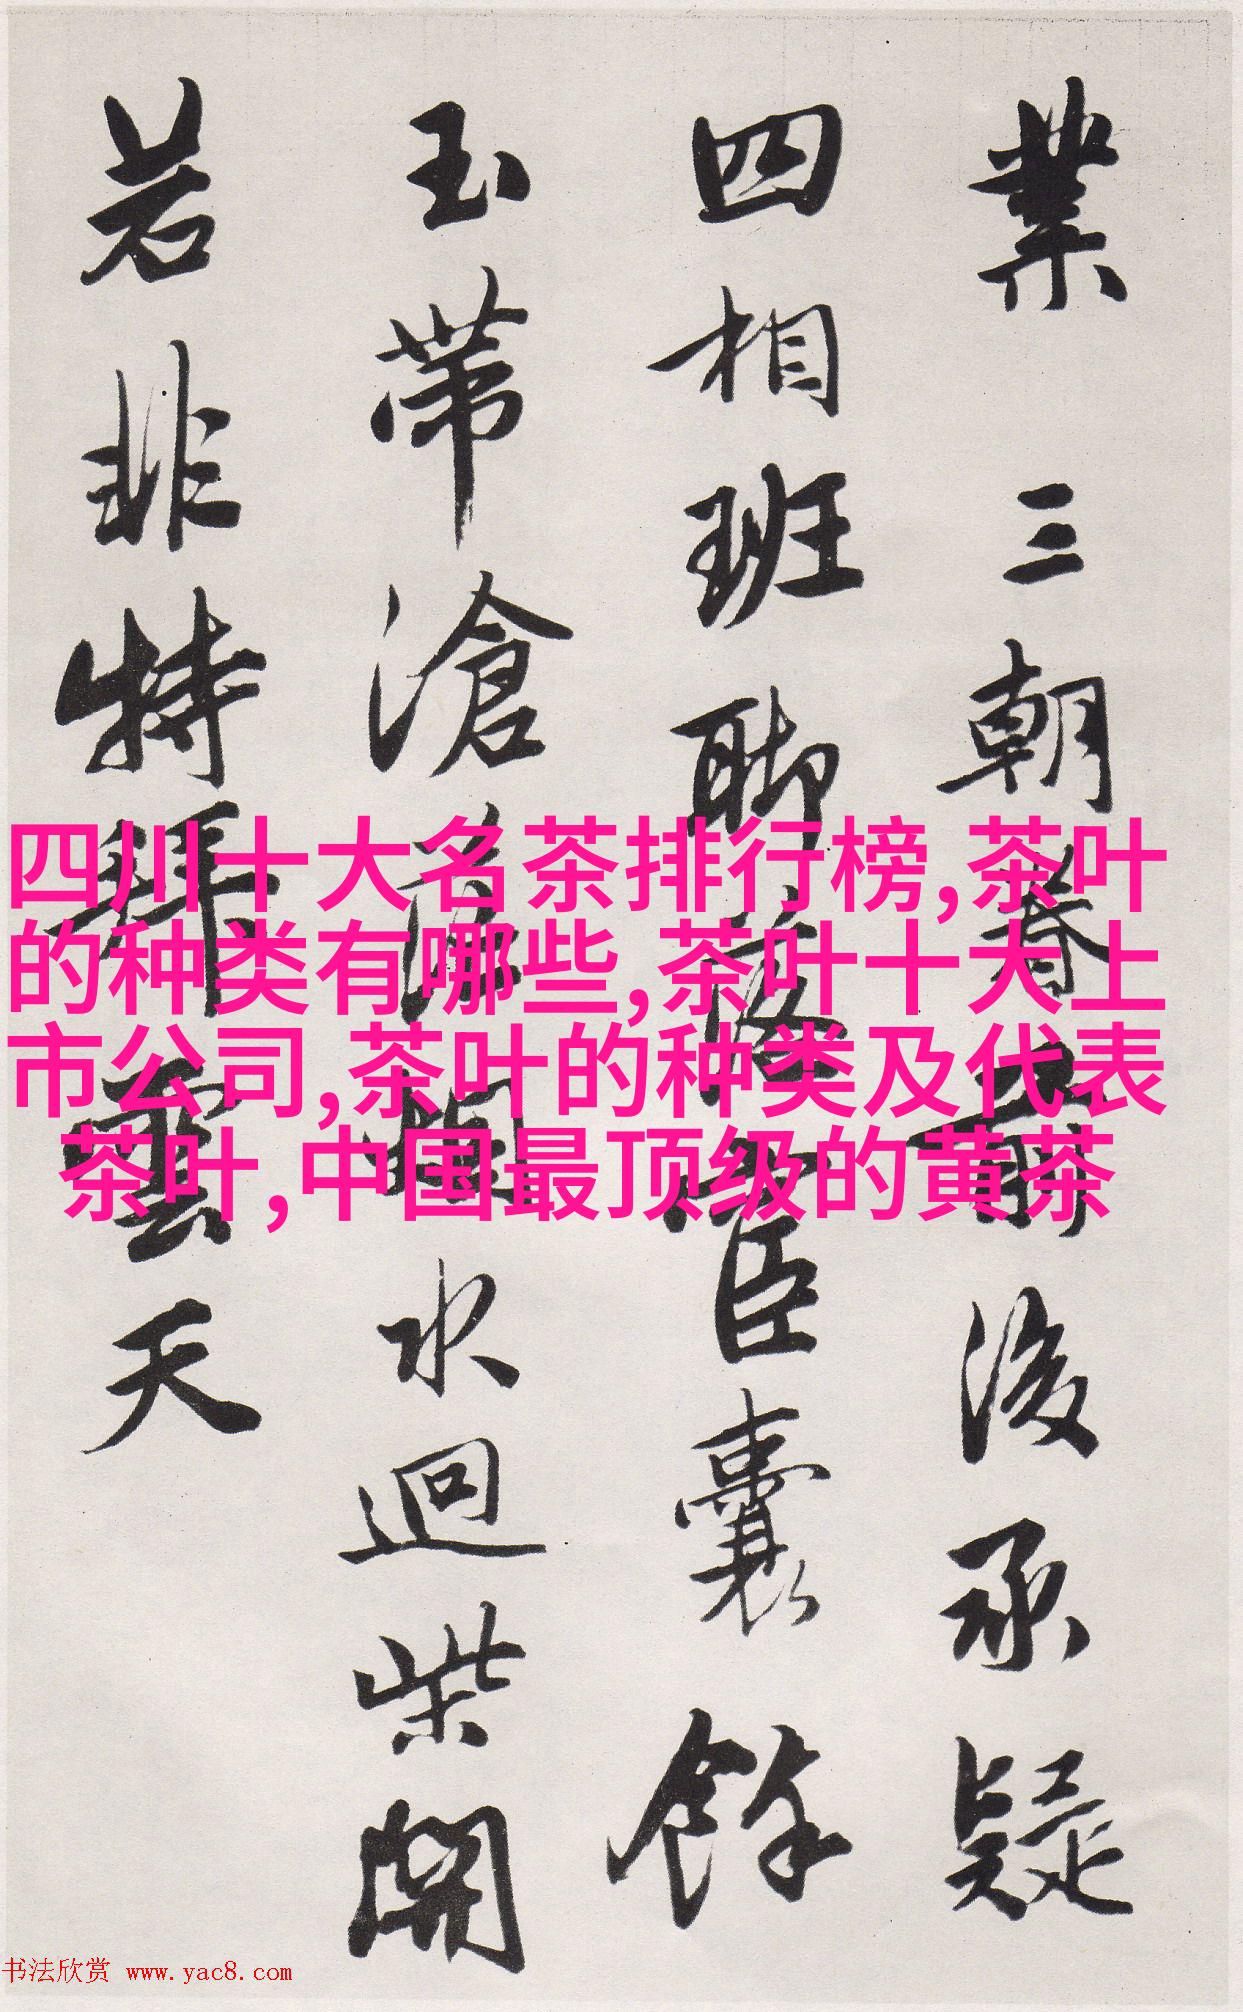 業 三朝前後承疑
四相班聊臣囊餘
玉帶滄水迴柴開
若非特拜雲天
四川十大名茶排行榜,茶叶
的种类有哪些,茶叶十大上
市公司,茶叶的种类及代表
茶叶,中国最顶级的黄茶
书法欣赏 www.yac8.com